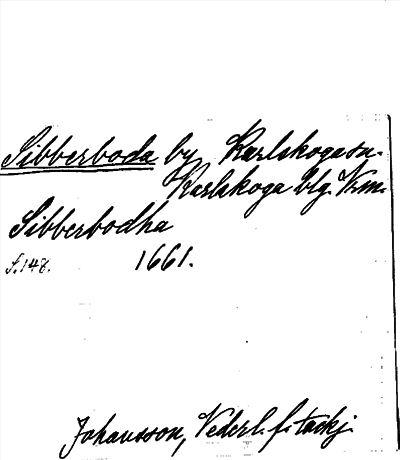 Sibberboda by Karlskoga sn.
Karlskoga blg. Vrm.
Sibberbodha
s. 148. 1661.
Johansson, Vederl. f. tackj.